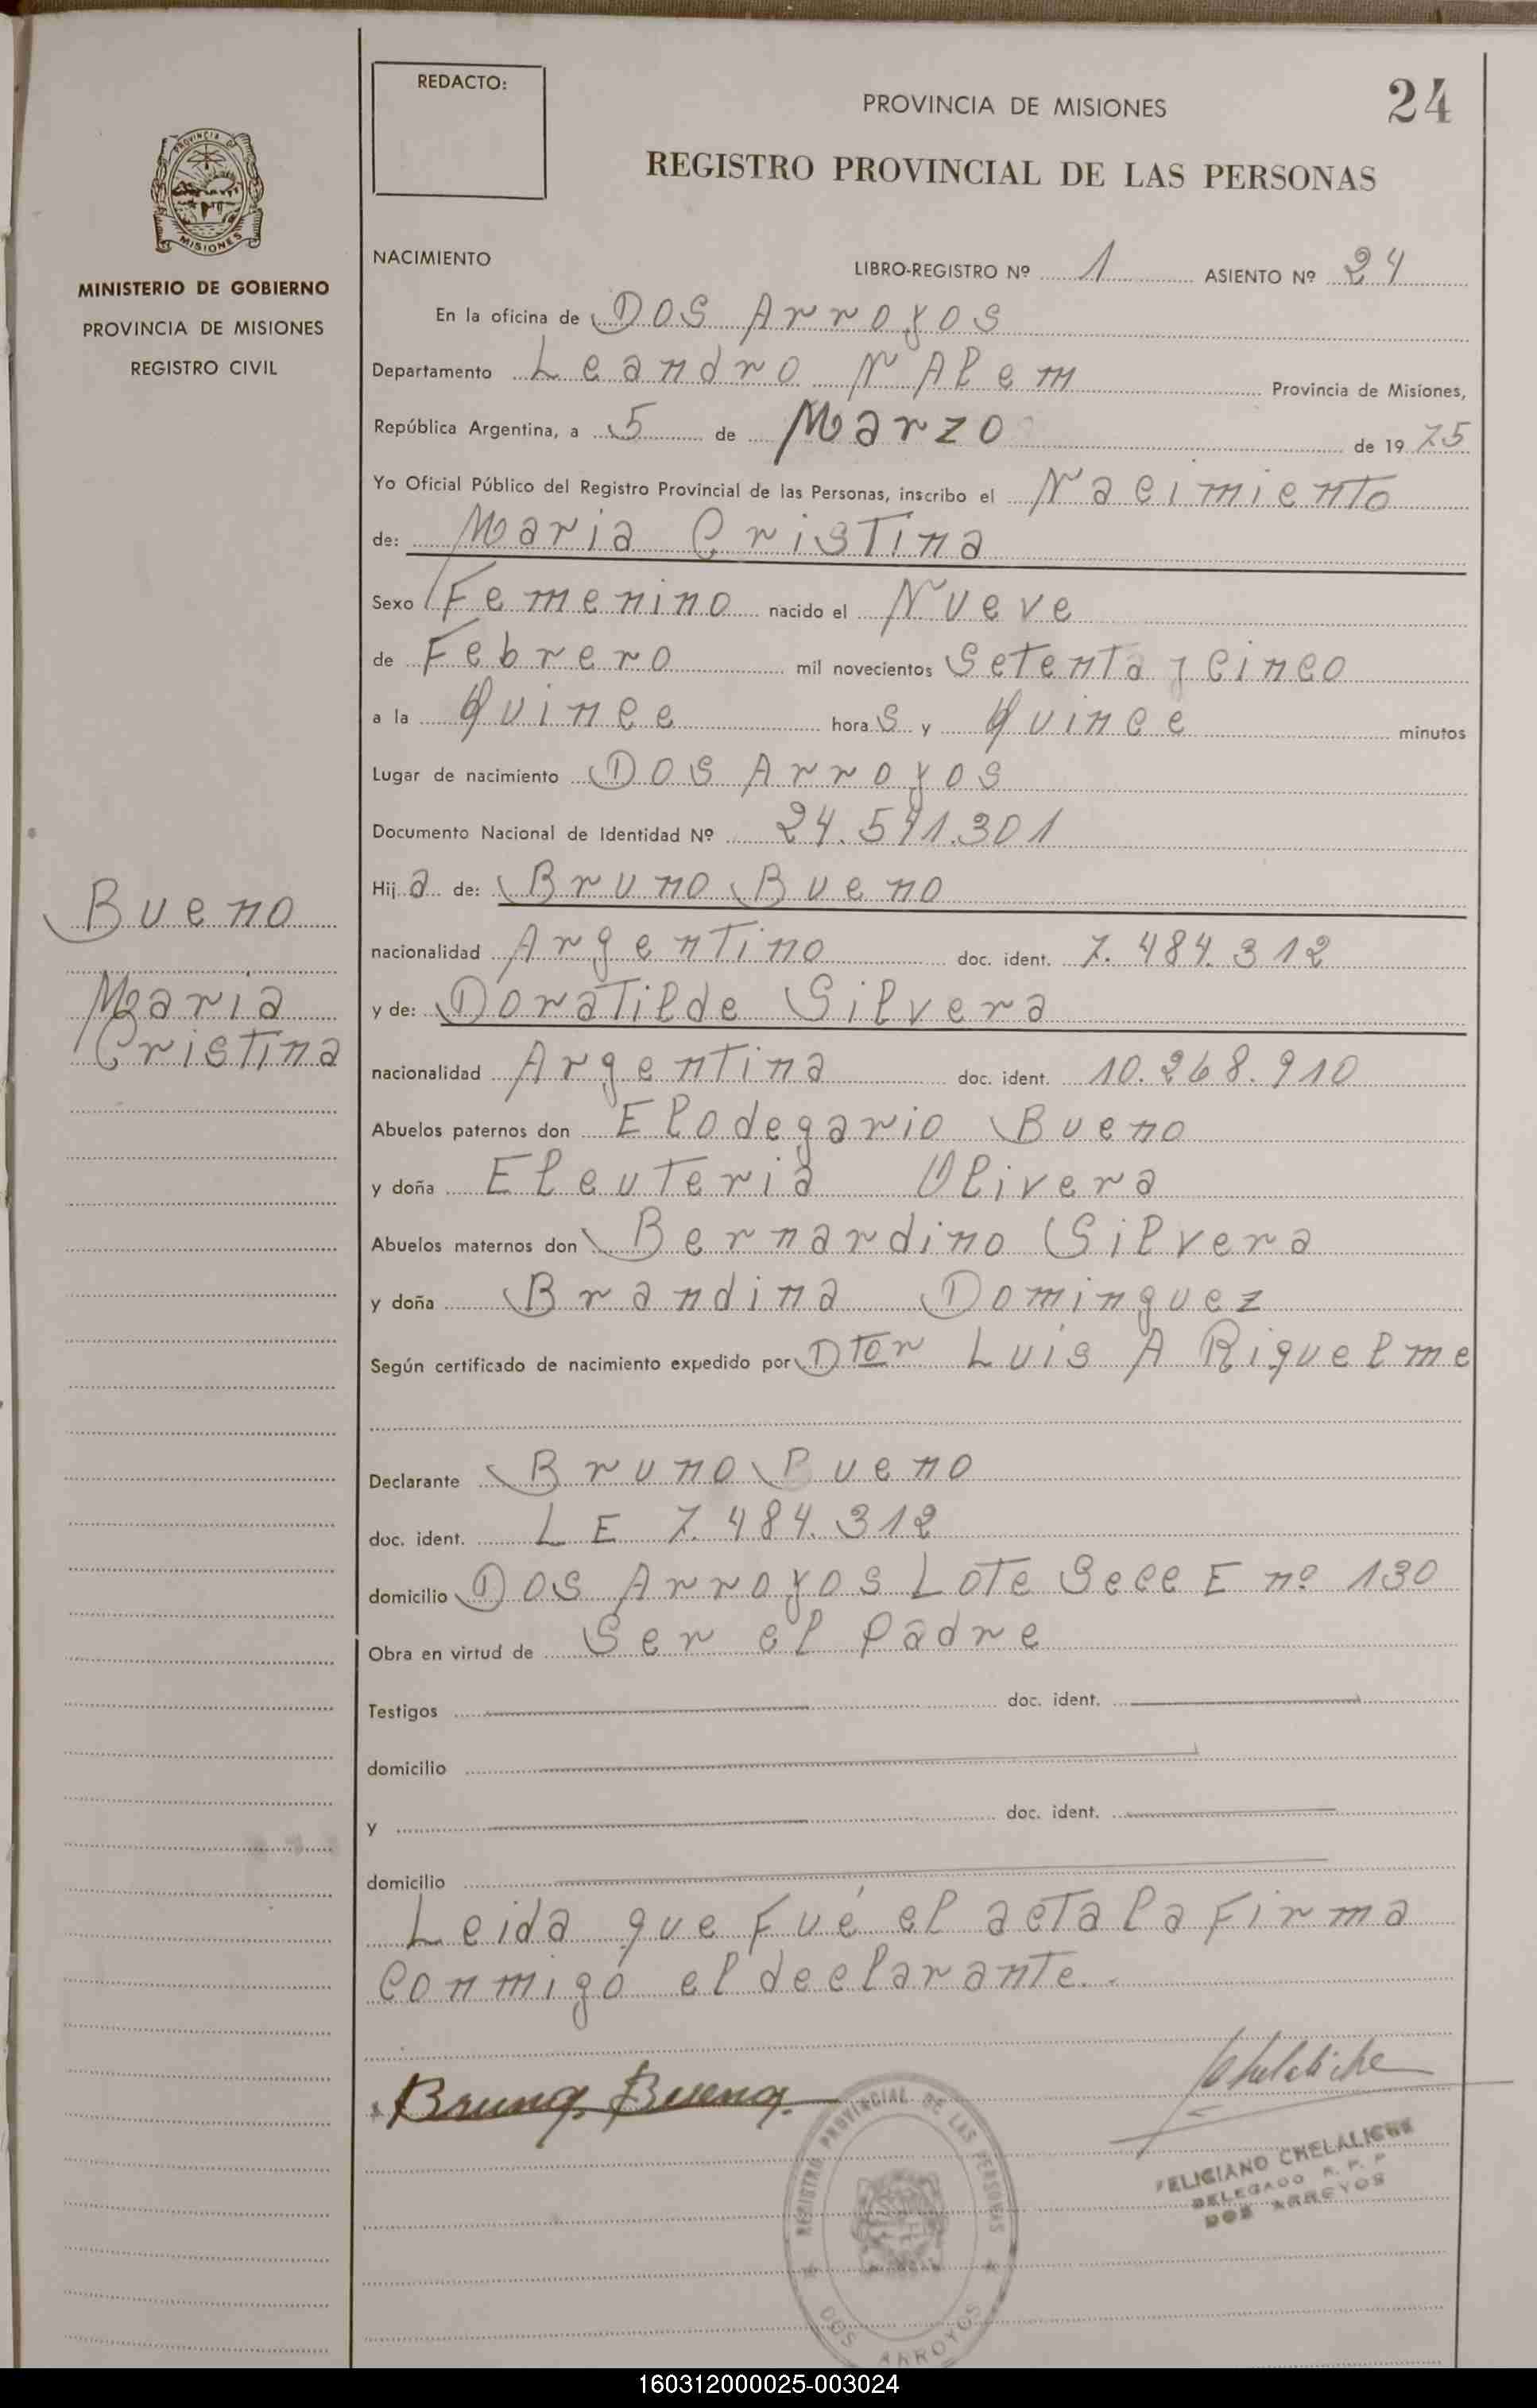 REDACTO:
PROVINCIA DE MISIONES
24
REGISTRO PROVINCIAL DE LAS PERSONAS
PROVINCIA DE
MISIONES
MINISTERIO DE GOBIERNO
PROVINCIA DE MISIONES
REGISTRO CIVIL
NACIMIENTO
LIBRO-REGISTRO Nº 1 ASIENTO Nº 24
En la oficina de Dos Arroyos
Departamento Leandro N Alem Provincia de Misiones,
República Argentina, a 5 de Marzo de 1975
Yo Oficial Público del Registro Provincial de las Personas, inscribo el Nacimiento
de: Maria Cristina
Sexo Femenino nacido el Nueve
de Febrero mil novecientos Setenta y Cinco
a la Quince horas y Quince minutos
Lugar de nacimiento Dos Arroyos
Documento Nacional de Identidad Nº 24.541.301
Hija de: Bruno Bueno
Bueno
Maria
Cristina
nacionalidad Argentino doc. ident. 7.484.312
y de: Doratilde Silvera
nacionalidad Argentina doc. ident. 10.268.910
Abuelos paternos don Elodegario Bueno
y doña Eleuteria Olivera
Abuelos maternos don Bernardino Silvera
y doña Brandina Dominguez
Según certificado de nacimiento expedido por Dtor Luis A Riquelme
Declarante Bruno Bueno
doc. ident. LE 7.484.312
domicilio Dos Arroyos Lote Secc E nº 130
Obra en virtud de Ser el Padre
Testigos doc. ident.
domicilio
y doc. ident.
domicilio
Leida que Fué el acta la Firma
Conmigo el declarante.
Bruno Bueno
Chelaliche
FELICIANO CHELALICHE
DELEGADO R. P. P
DOS ARROYOS
REGISTRO PROVINCIAL DE LAS PERSONAS
DOS ARROYOS
160312000025-003024